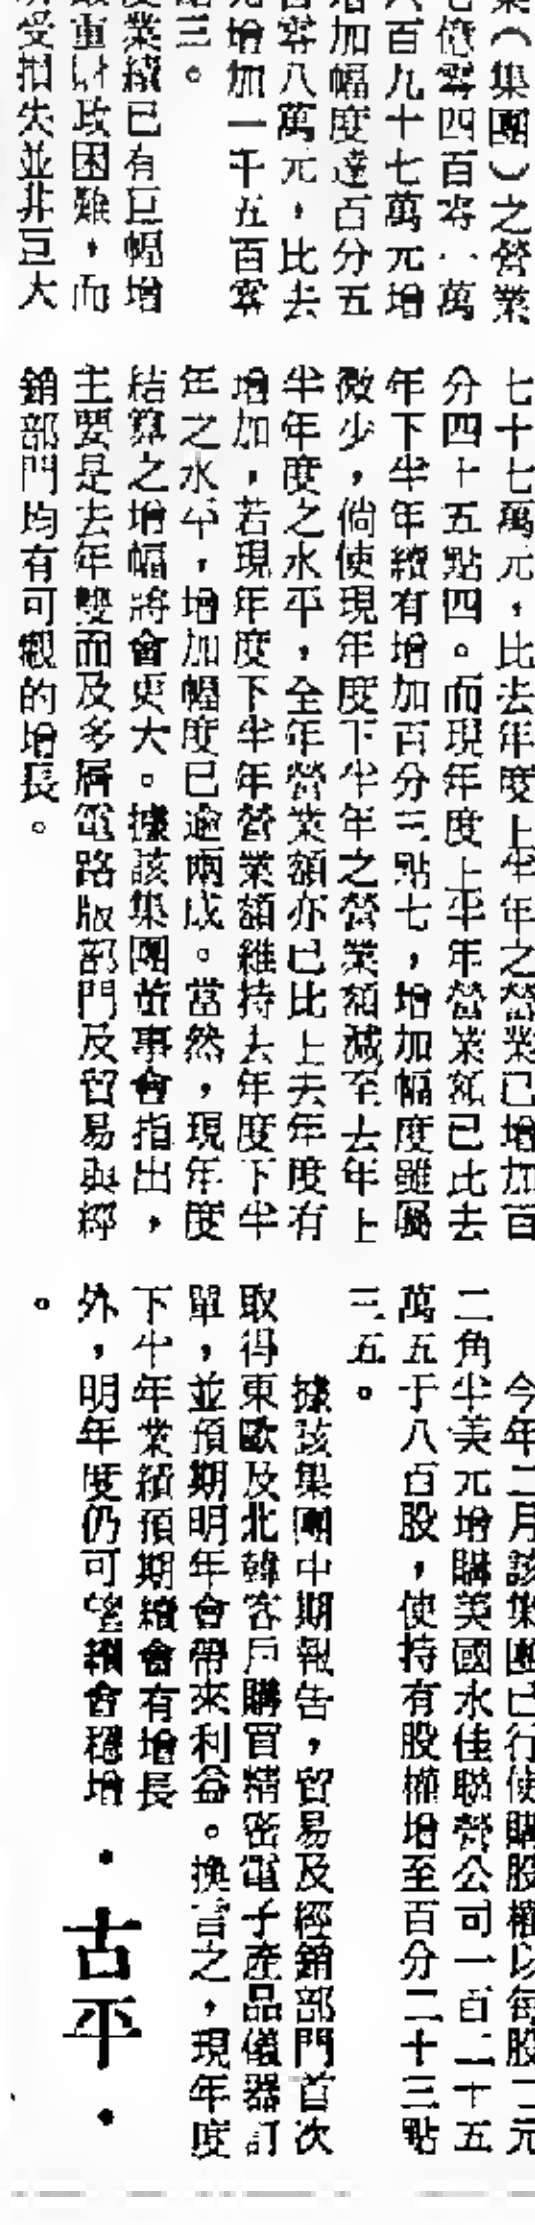 業（集團）之營業
七億零四百零一萬
六百九十七萬元增
增加幅度達百分五
百零八萬元，比去
元增加一千五百零
點三。
度業績已有巨幅增
嚴重財政困難，而
所受損失並非巨大
七十七萬元，比去年度上半年之營業已增加百
分四十五點四。而現年度上半年營業額已比去
年下半年續有增加百分三點七，增加幅度雖屬
微少，倘使現年度下半年之營業額減至去年上
半年度之水平，全年營業額亦已比上去年度有
增加，若現年度下半年營業額維持去年度下半
年之水平，增加幅度已逾兩成。當然，現年度
結算之增幅將會更大。據該集團董事會指出，
主要是去年雙面及多層電路版部門及貿易與經
銷部門均有可觀的增長。
今年二月該集團已行使購股權以每股二元
二角半美元增購美國永佳聯營公司一百二十五
萬五千八百股，使持有股權增至百分二十三點
三五。
據該集團中期報告，貿易及經銷部門首次
取得東歐及北韓客戶購買精密電子產品儀器訂
單，並預期明年會帶來利益。換言之，現年度
下半年業績預期續會有增長
外，明年度仍可望續會穩增
。
・古平・